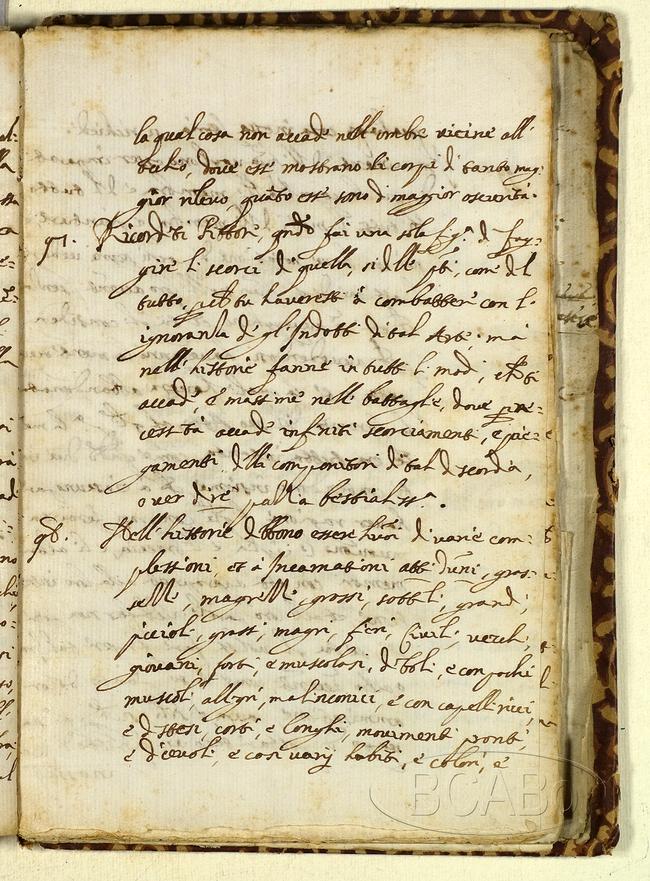 la qual cosa non accade nell'ombre vicine all'
ochio, dove esse mostrano li corpi di tanto mag
gior rilevo, quãto esse sono di maggior oscurità.
97. Ricordati Pittore, qñdo fai una sola fig.ª di fug-
gire li scorci di quella, si delle pti, come del
tutto, haveresti à combattere con l'
ignoranza de gl'Indotti di tal Arte; mà
nell'historie fanne in tutti li modi, che ti
accade, e massime nelle battaglie, dove p ne-
cessità accade infiniti scorciamenti, e pie-
gamenti delli componitori di tal discordia,
over dire pazzia bestialiss.ª.
98. Nell'historie debbono essere di varie com-
plessioni, et Incarnationi, gras-
magrelle, grossi, sottili, grandi,
piccioli, grassi, magri, fieri, Civili, vecchi,
giovani, forti, e muscolosi, deboli, e con pochi
muscoli, allegri, malinconici, e con capelli ricci,
e distesi, corti, e longhi, movimenti pronti,
e così varij habiti, e colori, e
BCABo